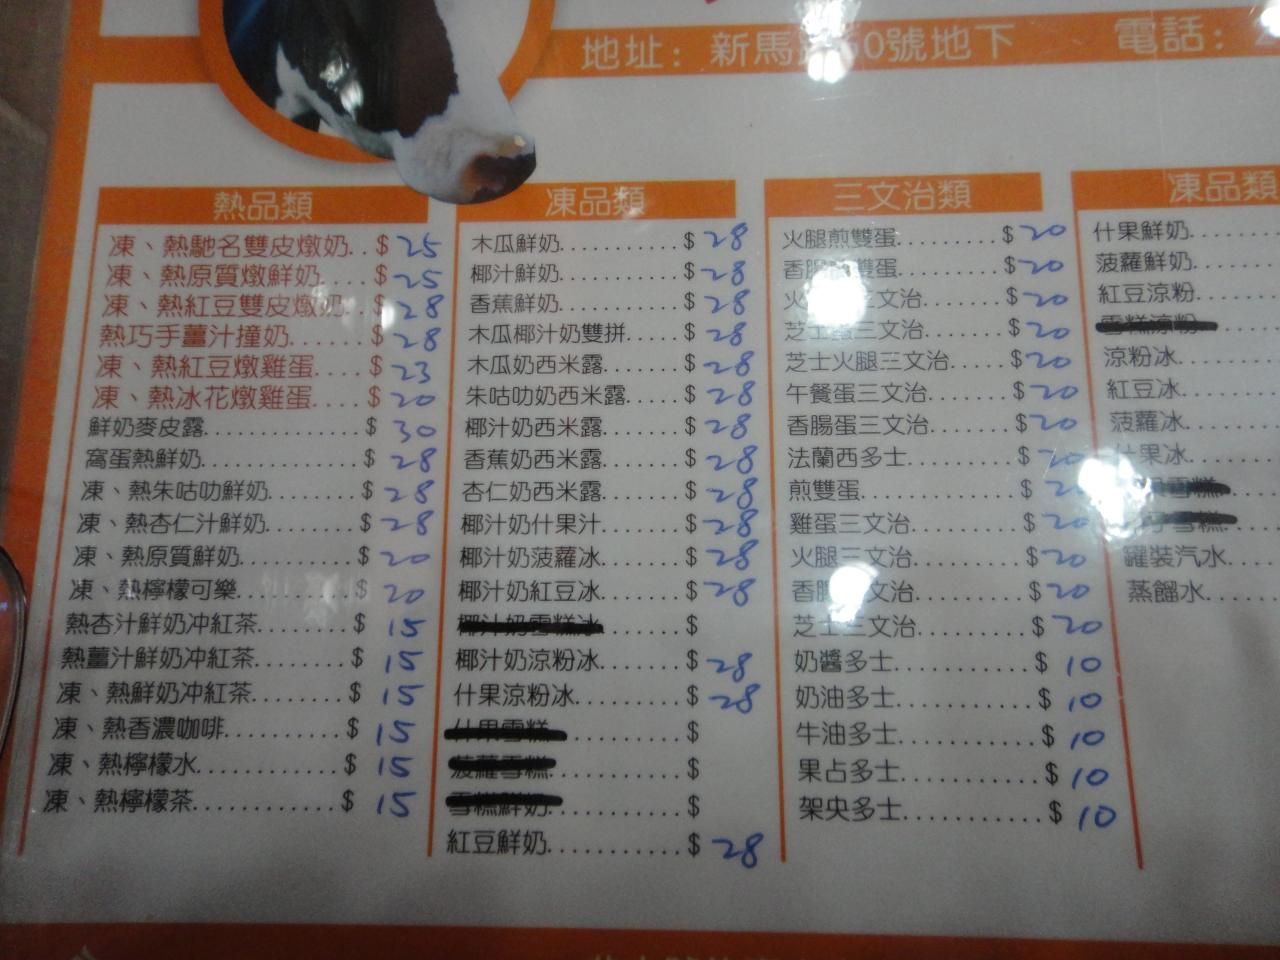 地址: 新馬路60號地下 電話:
熱品類
凍、熱馳名雙皮燉奶..$ 25
凍、熱原質燉鮮奶.....$ 25
凍、熱紅豆雙皮燉奶..$ 28
熱巧手薑汁撞奶.......$ 28
凍、熱紅豆燉雞蛋....$ 23
凍、熱冰花燉雞蛋.....$ 20
鮮奶麥皮露..............$ 30
窩蛋熱鮮奶..............$ 28
凍、熱朱咕叻鮮奶........$ 28
凍、熱杏仁汁鮮奶........$ 28
凍、熱原質鮮奶..........$ 20
凍、熱檸檬可樂..........$ 20
熱杏汁鮮奶冲紅茶........$ 15
熱薑汁鮮奶冲紅茶........$ 15
凍、熱鮮奶冲紅茶........$ 15
凍、熱香濃咖啡..........$ 15
凍、熱檸檬水............$ 15
凍、熱檸檬茶............$ 15
凍品類
木瓜鮮奶...........$ 28
椰汁鮮奶...........$ 28
香蕉鮮奶...........$ 28
木瓜椰汁奶雙拼.....$ 28
木瓜奶西米露.......$ 28
朱咕叻奶西米露.....$ 28
椰汁奶西米露.......$ 28
香蕉奶西米露.......$ 28
杏仁奶西米露.......$ 28
椰汁奶什果汁.......$ 28
椰汁奶菠蘿冰.......$ 28
椰汁奶紅豆冰.......$ 28
椰汁奶雪糕冰.......$
椰汁奶涼粉冰.......$ 28
什果涼粉冰.........$ 28
什果雪糕...........$
菠蘿雪糕...........$
雪糕鮮奶...........$
紅豆鮮奶...........$ 28
三文治類
火腿煎雙蛋.........$ 20
香腸煎雙蛋.........$ 20
三文治.......$ 20
芝士蛋三文治.......$ 20
芝士火腿三文治.....$ 20
午餐蛋三文治.......$ 20
香腸蛋三文治.......$ 20
法蘭西多士.........$ 20
煎雙蛋.............$ 20
雞蛋三文治.........$ 20
火腿三文治.........$ 20
香腸三文治.........$ 20
芝士三文治.........$ 20
奶醬多士...........$ 10
奶油多士...........$ 10
牛油多士...........$ 10
果占多士...........$ 10
架央多士...........$ 10
凍品類
什果鮮奶
菠蘿鮮奶
紅豆涼粉
雪糕涼粉
涼粉冰
紅豆冰
菠蘿冰
什果冰
雪糕
雪糕
罐裝汽水
蒸餾水